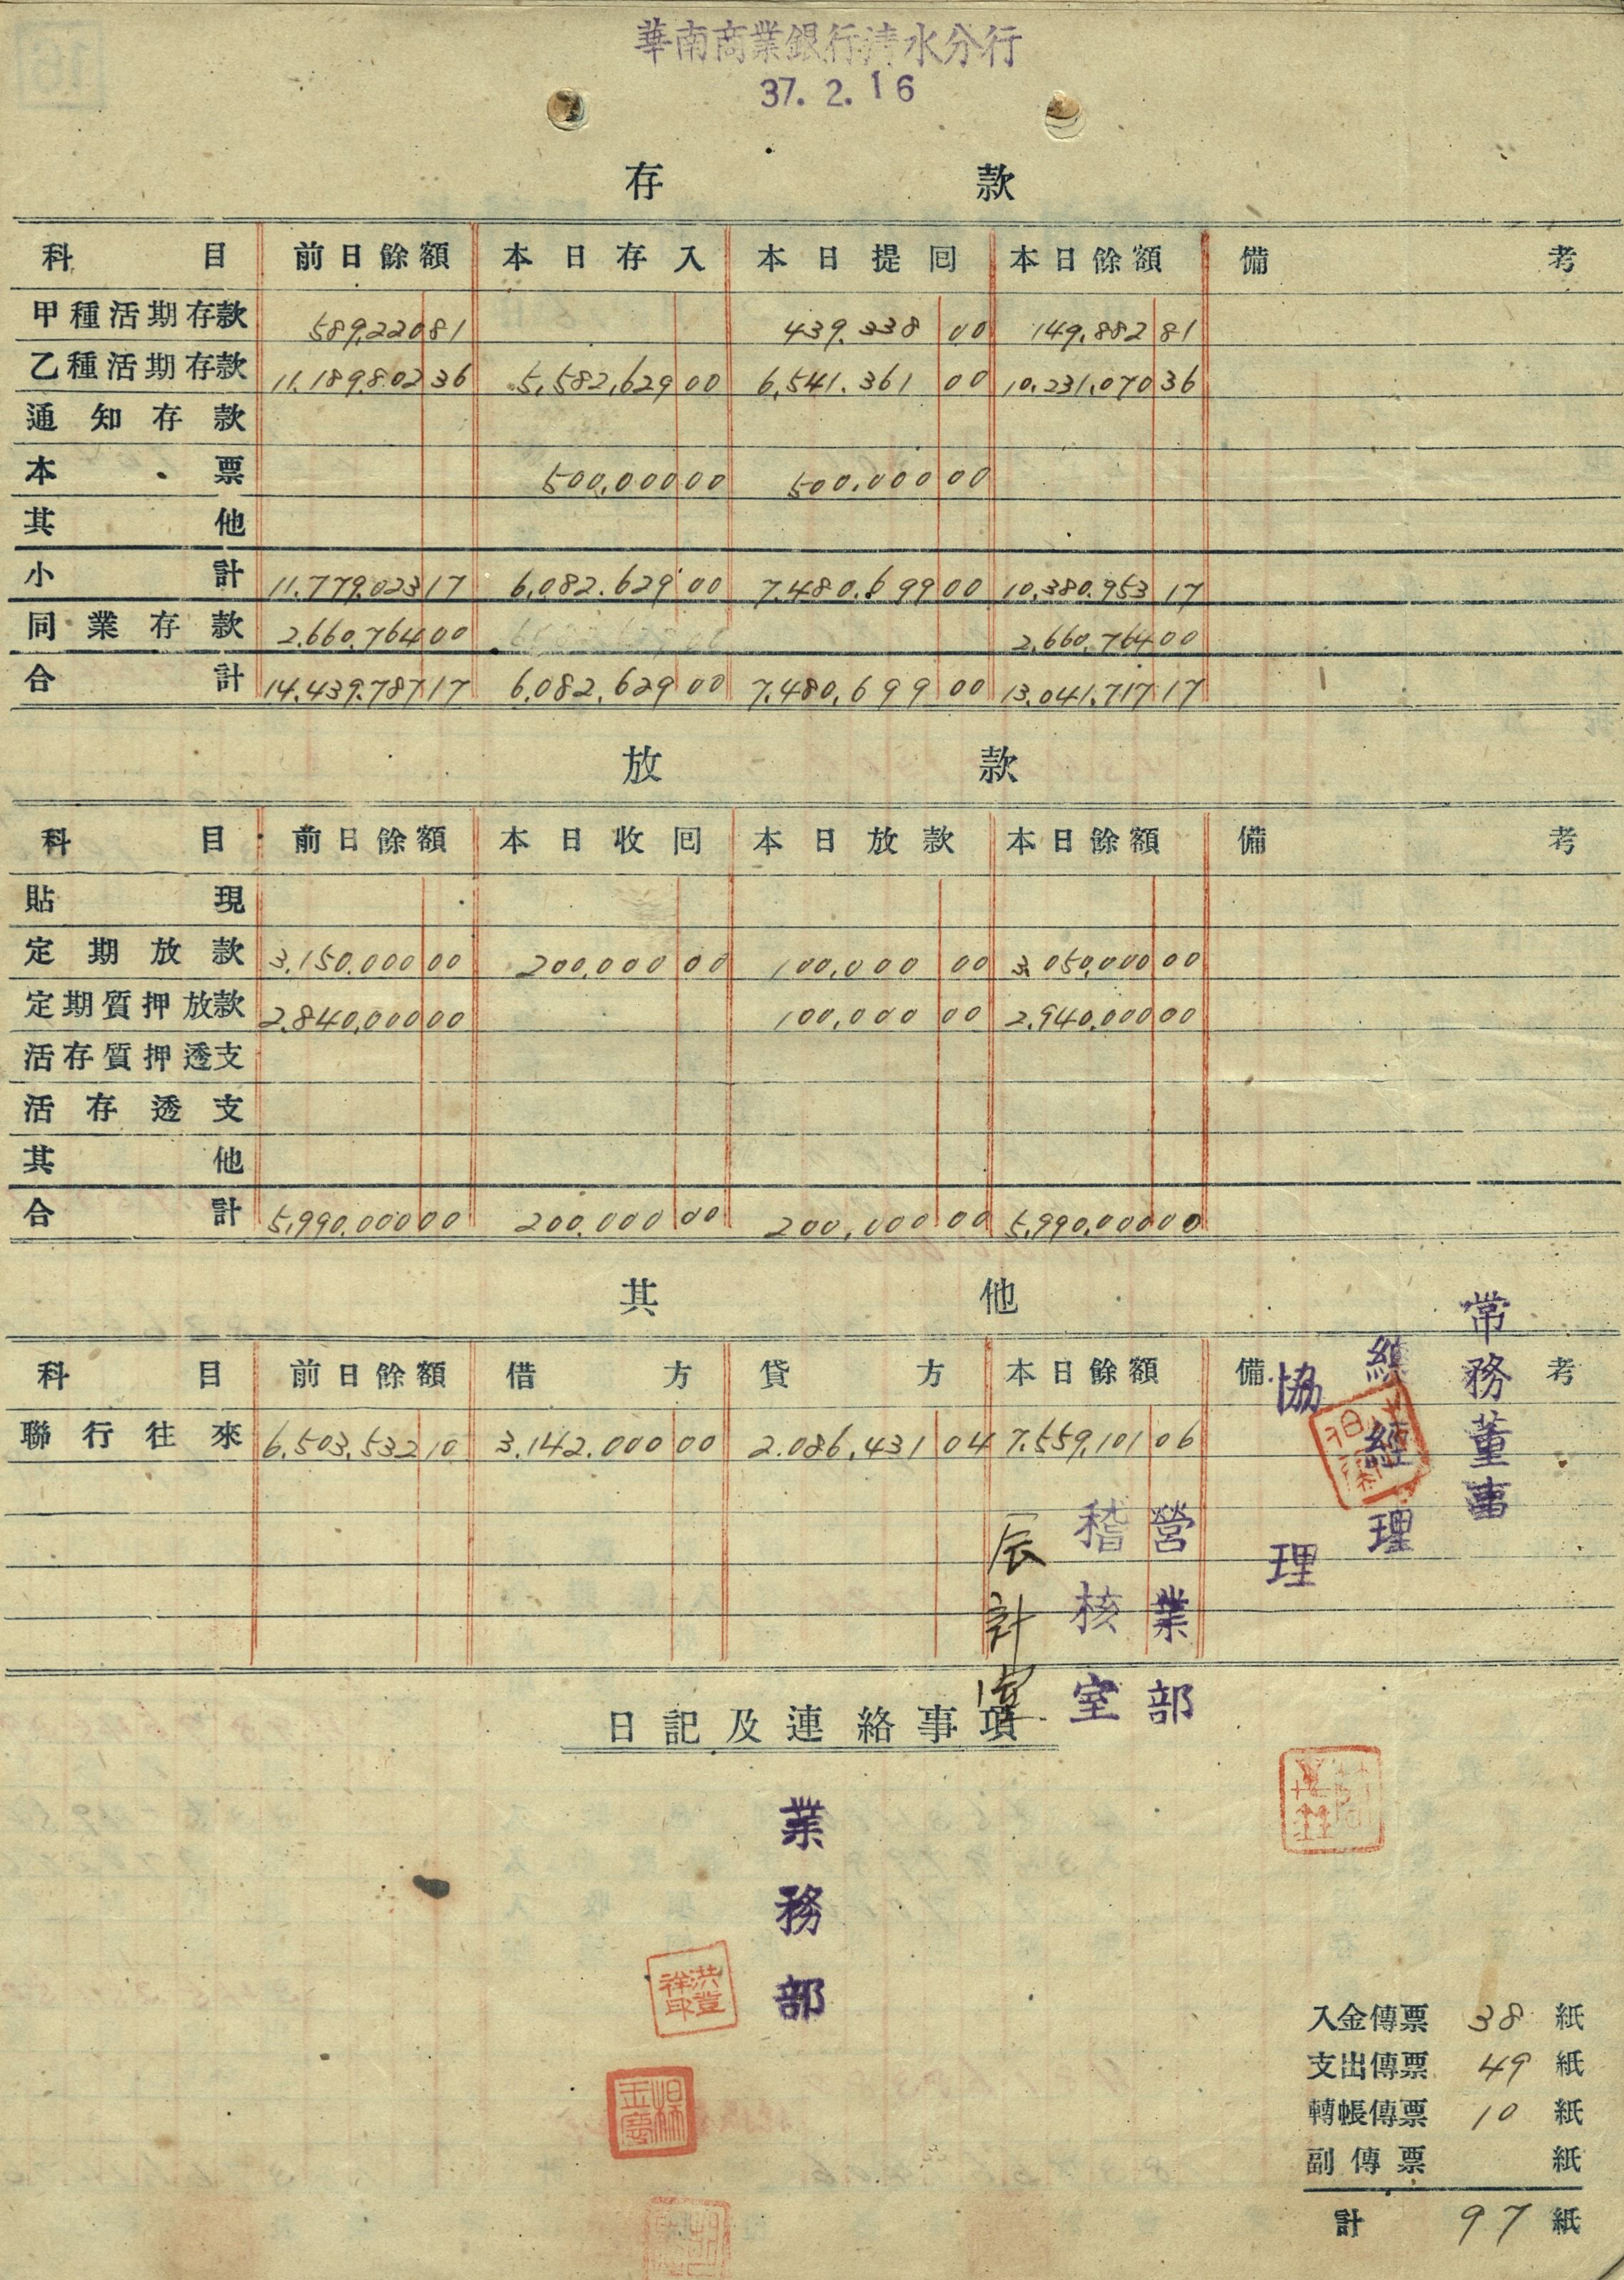 華南商業銀行清水分行
37. 2. 16
存款
科目 前日餘額 本日存入 本日提囘 本日餘額 備考
甲種活期存款 589,220 81 439.338 00 149,882 81
乙種活期存款 11.189,802 36 5,582,629 00 6,541.361 00 10,231,070 36
通知存款
本票 500,000 00 500,000 00
其他
小計 11.779,023 17 6,082.629 00 7,480,699 00 10,380,953 17
同業存款 2,660,764 00 2,660,764 00
合計 14.439.787 17 6,082,629 00 7,480,699 00 13,041,717 17
放款
科目 前日餘額 本日收囘 本日放款 本日餘額 備考
貼現
定期放款 3,150,000 00 200,000 00 100,000 00 3,050,000 00
定期質押放款 2,840,000 00 100,000 00 2,940,000 00
活存質押透支
活存透支
其他
合計 5,990,000 00 200,000 00 200,000 00 5,990,000 00
其他
科目 前日餘額 借方 貸方 本日餘額 備考
聯行往來 6,503,532 10 3,142.000 00 2.086,431 04 7,559,101 06
常務董事
總經理
協理
營業部
稽核室
日記及連絡事項
業務部
洪登祥印
楊玉慶
入金傳票 38 紙
支出傳票 49 紙
轉帳傳票 10 紙
副傳票 紙
計 97 紙